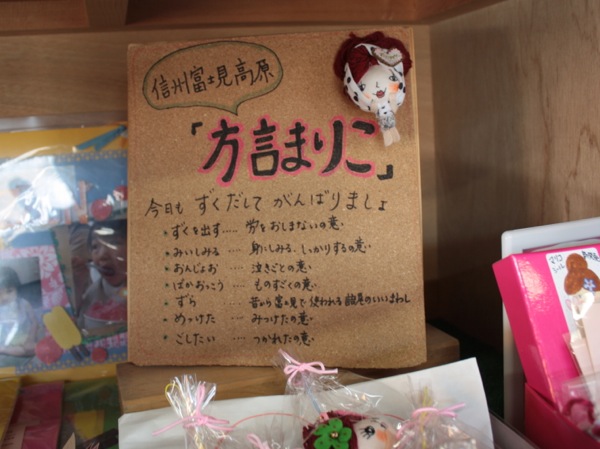 信州富士見高原
「方言まりこ」
今日も ずくだして がんばりましょ
* ずくを出す‥‥ 労をおしまないの意
* みいしみる ‥‥ 身にしみる、しっかりするの意
* おんじょお ‥‥ 泣きごとの意
* ばかおっこう ‥‥ ものすごくの意
* ずら ‥‥ 昔から富士見で使われる語尾のいいまわし
* めっけた ‥‥ みつけたの意
* ごしたい ‥‥ つかれたの意